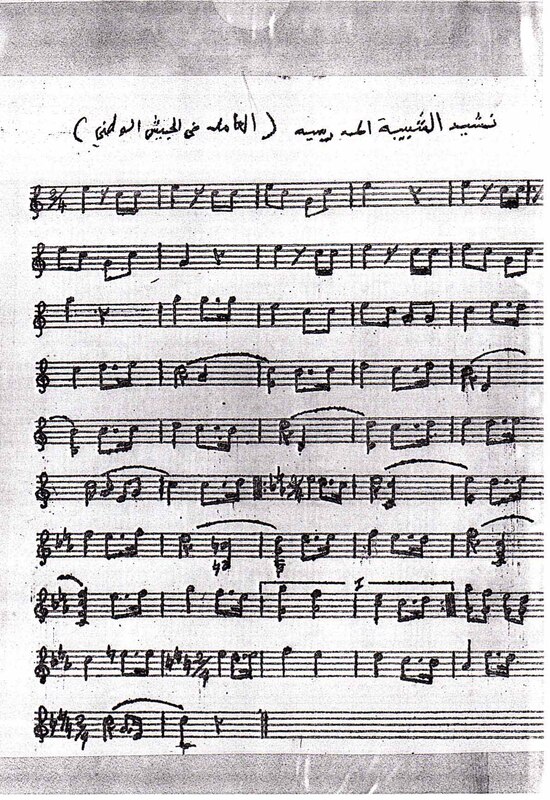 نشيد الشبيبة المدرسيه (العامله في الجيش الوطني)